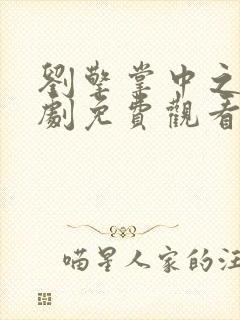 劉擎掌中之
劇免費觀看
喵星人家的汪